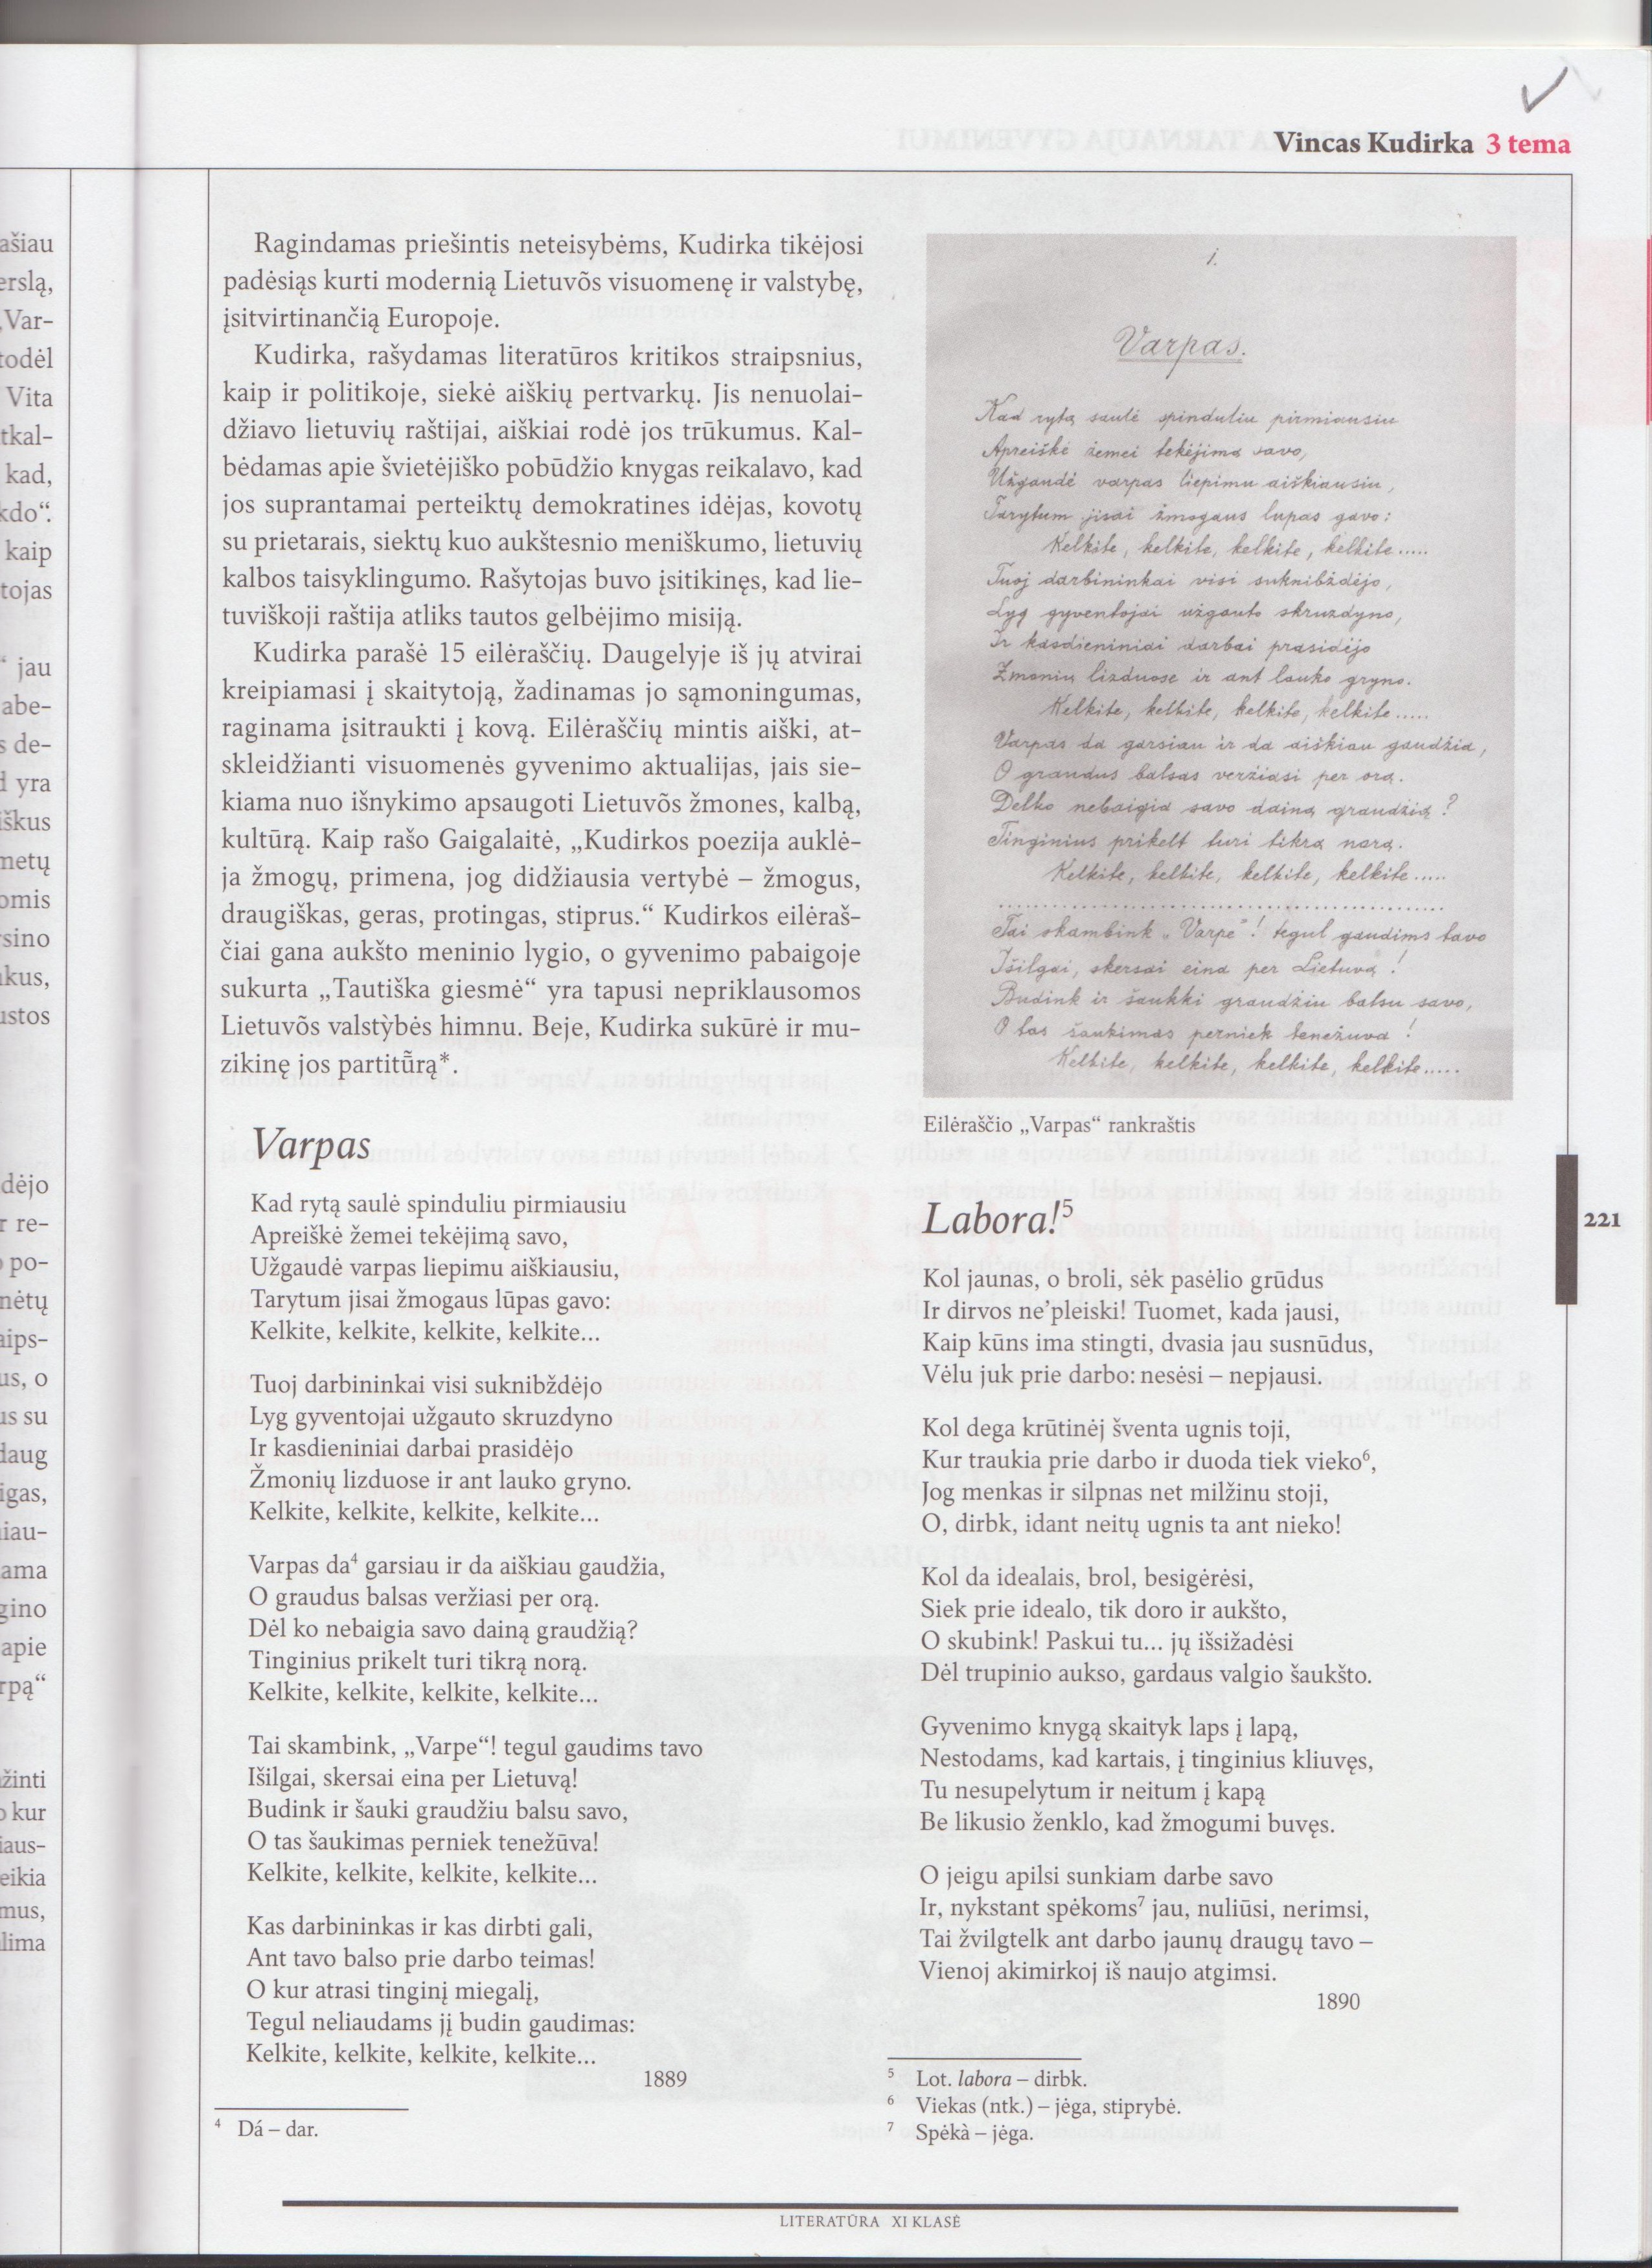 Vincas Kudirka 3 tema
ašiau
erslą,
„Var-
todėl
Vita
tkal-
kad,
kdo“.
kaip
tojas
“ jau
abe-
s de-
d yra
iškus
metų
omis
sino
kus,
ustos
dėjo
r re-
po-
mėtų
aips-
us, o
us su
daug
igas,
iau-
ama
gino
apie
rpą“
žinti
o kur
iaus-
eikia
mus,
lima
Ragindamas priešintis neteisybėms, Kudirka tikėjosi
padėsiąs kurti modernią Lietuvõs visuomenę ir valstybę,
įsitvirtinančią Europoje.
Kudirka, rašydamas literatūros kritikos straipsnius,
kaip ir politikoje, siekė aiškių pertvarkų. Jis nenuolai-
džiavo lietuvių raštijai, aiškiai rodė jos trūkumus. Kal-
bėdamas apie švietėjiško pobūdžio knygas reikalavo, kad
jos suprantamai perteiktų demokratines idėjas, kovotų
su prietarais, siektų kuo aukštesnio meniškumo, lietuvių
kalbos taisyklingumo. Rašytojas buvo įsitikinęs, kad lie-
tuviškoji raštija atliks tautos gelbėjimo misiją.
Kudirka parašė 15 eilėraščių. Daugelyje iš jų atvirai
kreipiamasi į skaitytoją, žadinamas jo sąmoningumas,
raginama įsitraukti į kovą. Eilėraščių mintis aiški, at-
skleidžianti visuomenės gyvenimo aktualijas, jais sie-
kiama nuo išnykimo apsaugoti Lietuvõs žmones, kalbą,
kultūrą. Kaip rašo Gaigalaitė, „Kudirkos poezija auklė-
ja žmogų, primena, jog didžiausia vertybė – žmogus,
draugiškas, geras, protingas, stiprus.“ Kudirkos eilėraš-
čiai gana aukšto meninio lygio, o gyvenimo pabaigoje
sukurta „Tautiška giesmė“ yra tapusi nepriklausomos
Lietuvõs valstỹbės himnu. Beje, Kudirka sukūrė ir mu-
zikinę jos partitū̃rą*.
Varpas
Kad rytą saulė spinduliu pirmiausiu
Apreiškė žemei tekėjimą savo,
Užgaudė varpas liepimu aiškiausiu,
Tarytum jisai žmogaus lūpas gavo:
Kelkite, kelkite, kelkite, kelkite...
Tuoj darbininkai visi suknibždėjo
Lyg gyventojai užgauto skruzdyno
Ir kasdieniniai darbai prasidėjo
Žmonių lizduose ir ant lauko gryno.
Kelkite, kelkite, kelkite, kelkite...
Varpas da⁴ garsiau ir da aiškiau gaudžia,
O graudus balsas veržiasi per orą.
Dėl ko nebaigia savo dainą graudžią?
Tinginius prikelt turi tikrą norą.
Kelkite, kelkite, kelkite, kelkite...
Tai skambink, „Varpe“! tegul gaudims tavo
Išilgai, skersai eina per Lietuvą!
Budink ir šauki graudžiu balsu savo,
O tas šaukimas perniek tenežūva!
Kelkite, kelkite, kelkite, kelkite...
Kas darbininkas ir kas dirbti gali,
Ant tavo balso prie darbo teimas!
O kur atrasi tinginį miegalį,
Tegul neliaudams jį budin gaudimas:
Kelkite, kelkite, kelkite, kelkite...
1889
⁴ Dá – dar.
1.
Varpas.
Kad rytą saulė spinduliu pirmiausiu
Apreiškė žemei tekėjimą savo,
Užgaudė varpas liepimu aiškiausiu,
Tarytum jisai žmogaus lupas gavo:
Kelkite, kelkite, kelkite, kelkite.....
Tuoj darbininkai visi suknibždėjo,
Lyg gyventojai užgauto skruzdyno,
Ir kasdieniniai darbai prasidėjo
Žmonių lizduose ir ant lauko gryno.
Kelkite, kelkite, kelkite, kelkite.....
Varpas da garsiau ir da aiškiau gaudžia,
O graudus balsas veržiasi per orą.
Delko nebaigia savo dainą graudžią?
Tinginius prikelt turi tikrą norą.
Kelkite, kelkite, kelkite, kelkite.....
Tai skambink „Varpe“! tegul gaudims tavo
Išilgai, skersai eina per Lietuvą!
Budink ir šaukki graudžiu balsu savo,
O tas šaukimas perniek tenežuva!
Kelkite, kelkite, kelkite, kelkite.....
Eilėraščio „Varpas“ rankraštis
Labora!⁵
Kol jaunas, o broli, sėk pasėlio grūdus
Ir dirvos ne’pleiski! Tuomet, kada jausi,
Kaip kūns ima stingti, dvasia jau susnūdus,
Vėlu juk prie darbo: nesėsi – nepjausi.
Kol dega krūtinėj šventa ugnis toji,
Kur traukia prie darbo ir duoda tiek vieko⁶,
Jog menkas ir silpnas net milžinu stoji,
O, dirbk, idant neitų ugnis ta ant nieko!
Kol da idealais, brol, besigėrėsi,
Siek prie idealo, tik doro ir aukšto,
O skubink! Paskui tu... jų išsižadėsi
Dėl trupinio aukso, gardaus valgio šaukšto.
Gyvenimo knygą skaityk laps į lapą,
Nestodams, kad kartais, į tinginius kliuvęs,
Tu nesupelytum ir neitum į kapą
Be likusio ženklo, kad žmogumi buvęs.
O jeigu apilsi sunkiam darbe savo
Ir, nykstant spėkoms⁷ jau, nuliūsi, nerimsi,
Tai žvilgtelk ant darbo jaunų draugų tavo –
Vienoj akimirkoj iš naujo atgimsi.
1890
⁵ Lot. labora – dirbk.
⁶ Viekas (ntk.) – jėga, stiprybė.
⁷ Spėkà – jėga.
221
LITERATŪRA XI KLASĖ